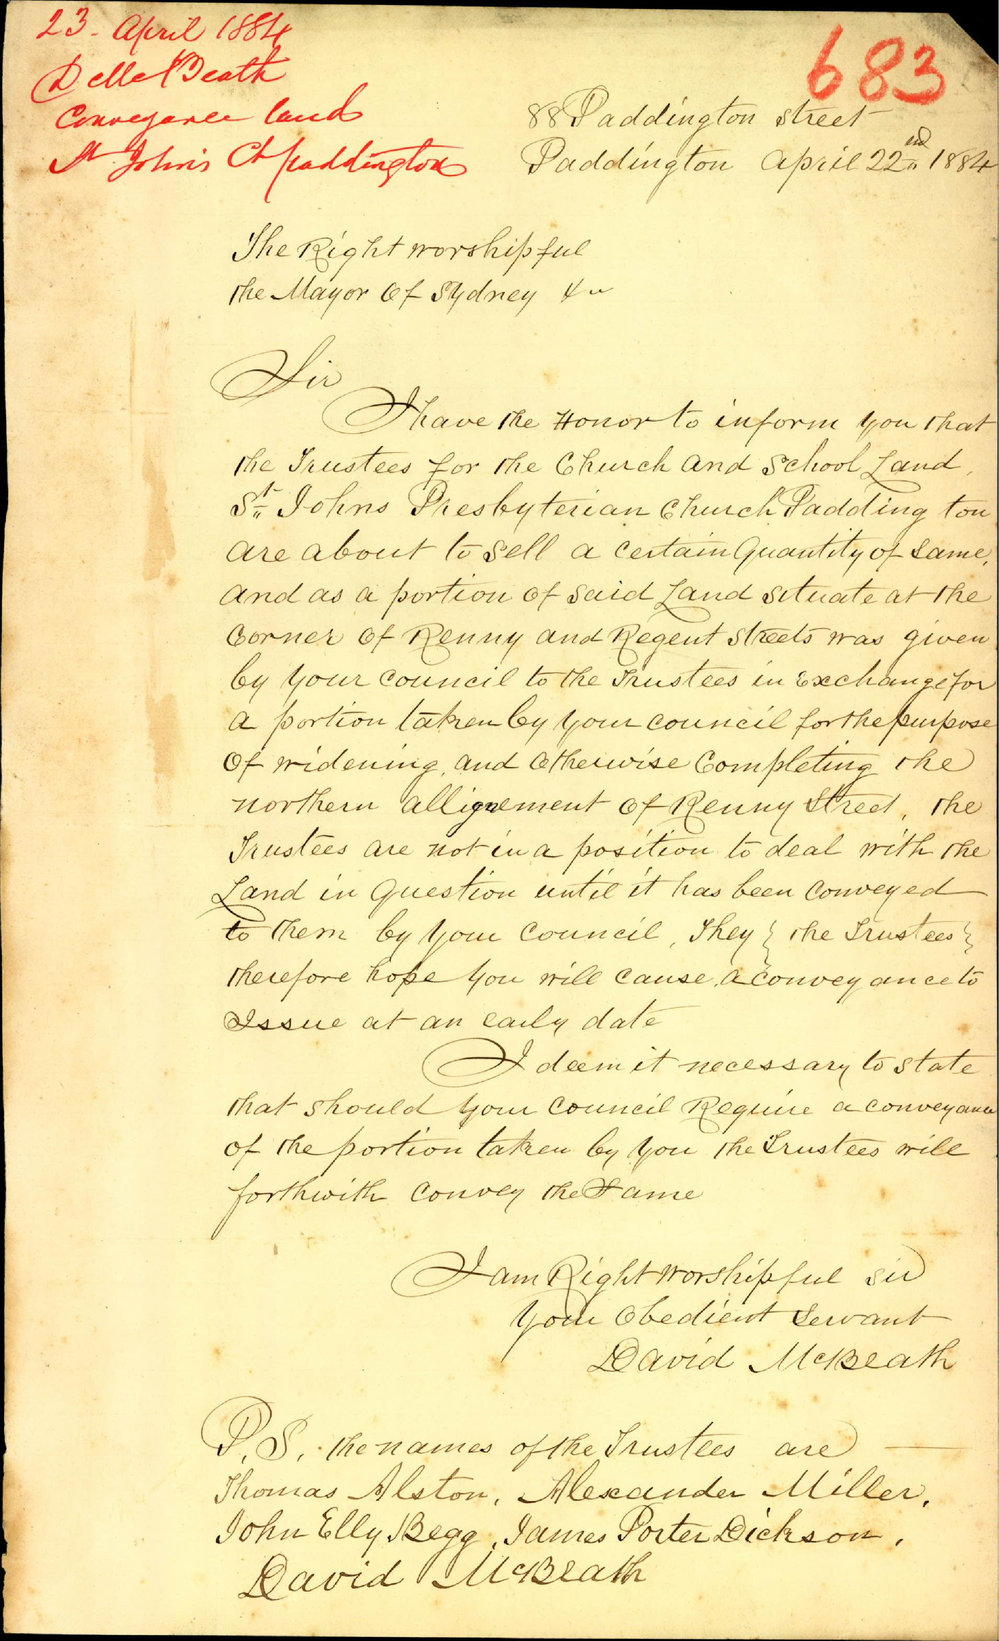 23. April 1884
D McBeath
Conveyance land
St. John's Ch paddington
683
88 Paddington Street
Paddington April 22nd 1884
The Right worshipful
the Mayor Of Sydney &c
Sir
I have the Honor to inform you that
the Trustees for the Church and School Land,
St. Johns Presbyterian Church Paddington
are about to Sell a certain Quantity of Same,
and as a portion of said Land Situate at the
Corner Of Renny and Regent Streets was given
by your Council to the Trustees in Exchange for
a portion taken by your council for the purpose
Of widening, and Otherwise Completing the
northern allignement Of Renny Street, the
Trustees are not in a position to deal with the
Land in Question until it has been conveyed
to them by your Council, They { the Trustees }
therefore hope you will cause a conveyance to
Issue at an early date
I deem it necessary to state
that should your Council Require a conveyance
of the portion taken by you the Trustees will
forthwith convey the Same
I am Right Worshipful Sir
Your Obedient Servant
David McBeath
P.S. the names of the Trustees are
Thomas Alston, Alexander Miller,
John Elly Begg, James Porter Dickson,
David McBeath